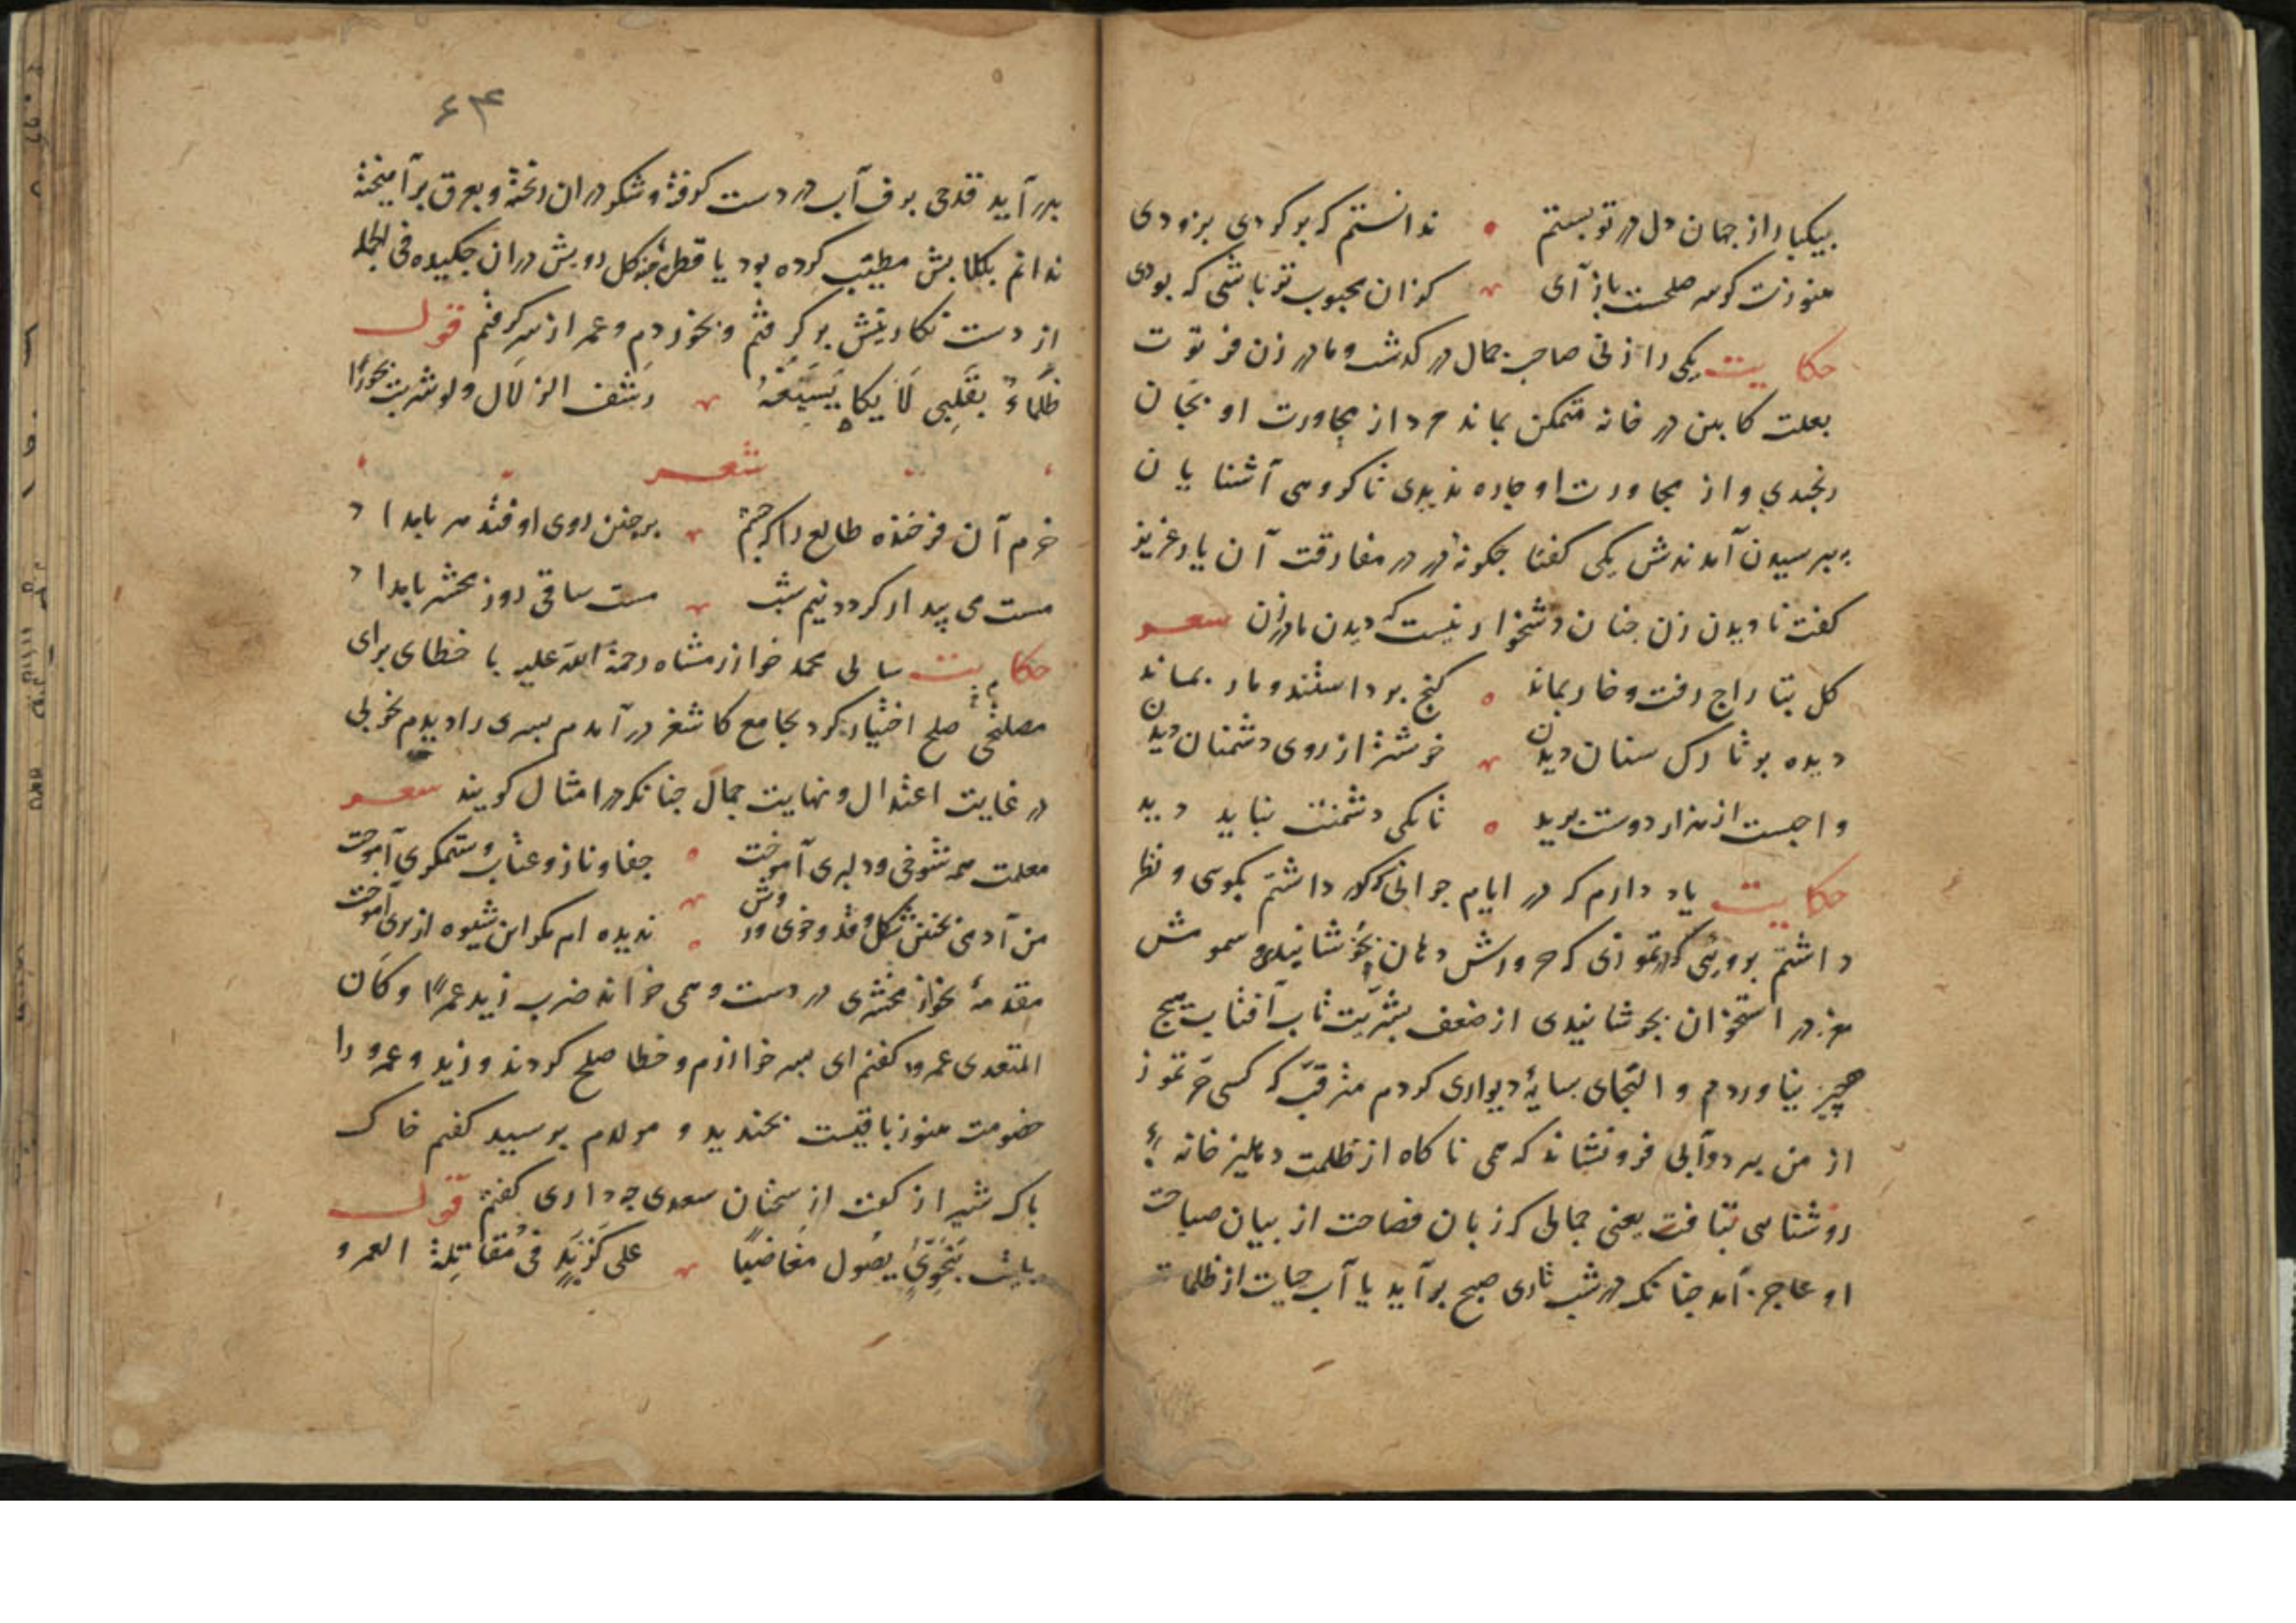 بیکبار از جهان دل در تو بستم ندانستم که برکردی بزودی
هنوزت کر سر صلحست باز آی کزان محبوب تر باشی که بودی
حکایت یکی را زنی صاحب جمال در کذشت و مادر زن فرتوت
بعلت کابین در خانه متمکن بماند مرد از مجاورت او بجان
رنجیدی و از مجاورت او چاره ندیدی تا کروهی آشنایان
بپرسیدن آمدندش یکی کفتا چکونه در مفارقت آن یار عزیز
کفت نادیدن زن چنان دشخوار نیست که دیدن مادرزن شعر
کل بتاراج رفت و خار بماند کنج برداشتند و مار بماند
دیده بر تارک سنان دیدن خوشتر از روی دشمنان دیدن
واجبست از هزار دوست برید تا یکی دشمنت نباید دید
حکایت یاد دارم که در ایام جوانی کذر داشتم بکوی و نظر
داشتم برویی در تموزی که حرورش دهان بخوشانیدی و سموش
مغز در استخوان بجوشانیدی از ضعف بشریت تاب آفتاب هیچ
هچیر نیاوردم و التجای بسایه دیواری کردم مترقب که کسی حر تموز
از من ببرد آبی فرونشاند که همی ناکاه از ظلمت دهلیز خانه
روشنایی بتافت یعنی جمالی که زبان فصاحت از بیان صباحت
او عاجز آمد چنانک در شب تاری صبح برآید یا آب حیات از ظلمات
۶۴
بدر آید قدحی برف آب در دست کرفته و شکر در ان ریخته و بعرق برآمیخته
ندانم بکلابش مطیب کرده بود یا قطرهٔ چند کل رویش در ان چکیده فی الجمله
از دست نکارینش برکرفتم و بخوردم و عمر از سر کرفتم قول
ظَمَاءٌ بقَلبِی لَا یکا یَسِیغُهُ رشف الزلال ولو شربت بحورًا
شعر
خرم آن فرخنده طالع را که چشم بر چنین روی اوفتد هر بامداد
مست می بیدار کردد نیم شب مست ساقی روز محشر بامداد
حکایت سالی محمد خوارزمشاه رحمة الله علیه با خطای برای
مصلحتی صلح اختیار کرد بجامع کاشغر در آمدم پسری را دیدم بخوبی
در غایت اعتدال و نهایت جمال چنانکه در امثال کویند شعر
معلمت همه شوخی و دلبری آموخت جفا و ناز و عتاب و ستمکری آموخت
من آدمی بچنین شکل و قد و خوی و روش ندیده ام مکر این شیوه از پری آموخت
مقدمهٔ نحو زمخشری در دست و همی خواند ضرب زید عمرًا و کان
المتعدی عمرو کفتم ای پسر خوارزم و خطا صلح کردند و زید و عمرو را
خصومت هنوز باقیست بخندید و مولدم پرسید کفتم خاک
پاک شیراز کفت از سخنان سعدی چه داری کفتم قول
بلیت بنَحْوِیٍّ یصُول مغَاضبًا علی کَزَیْدٍ فی مُقَاتِلة العمرو